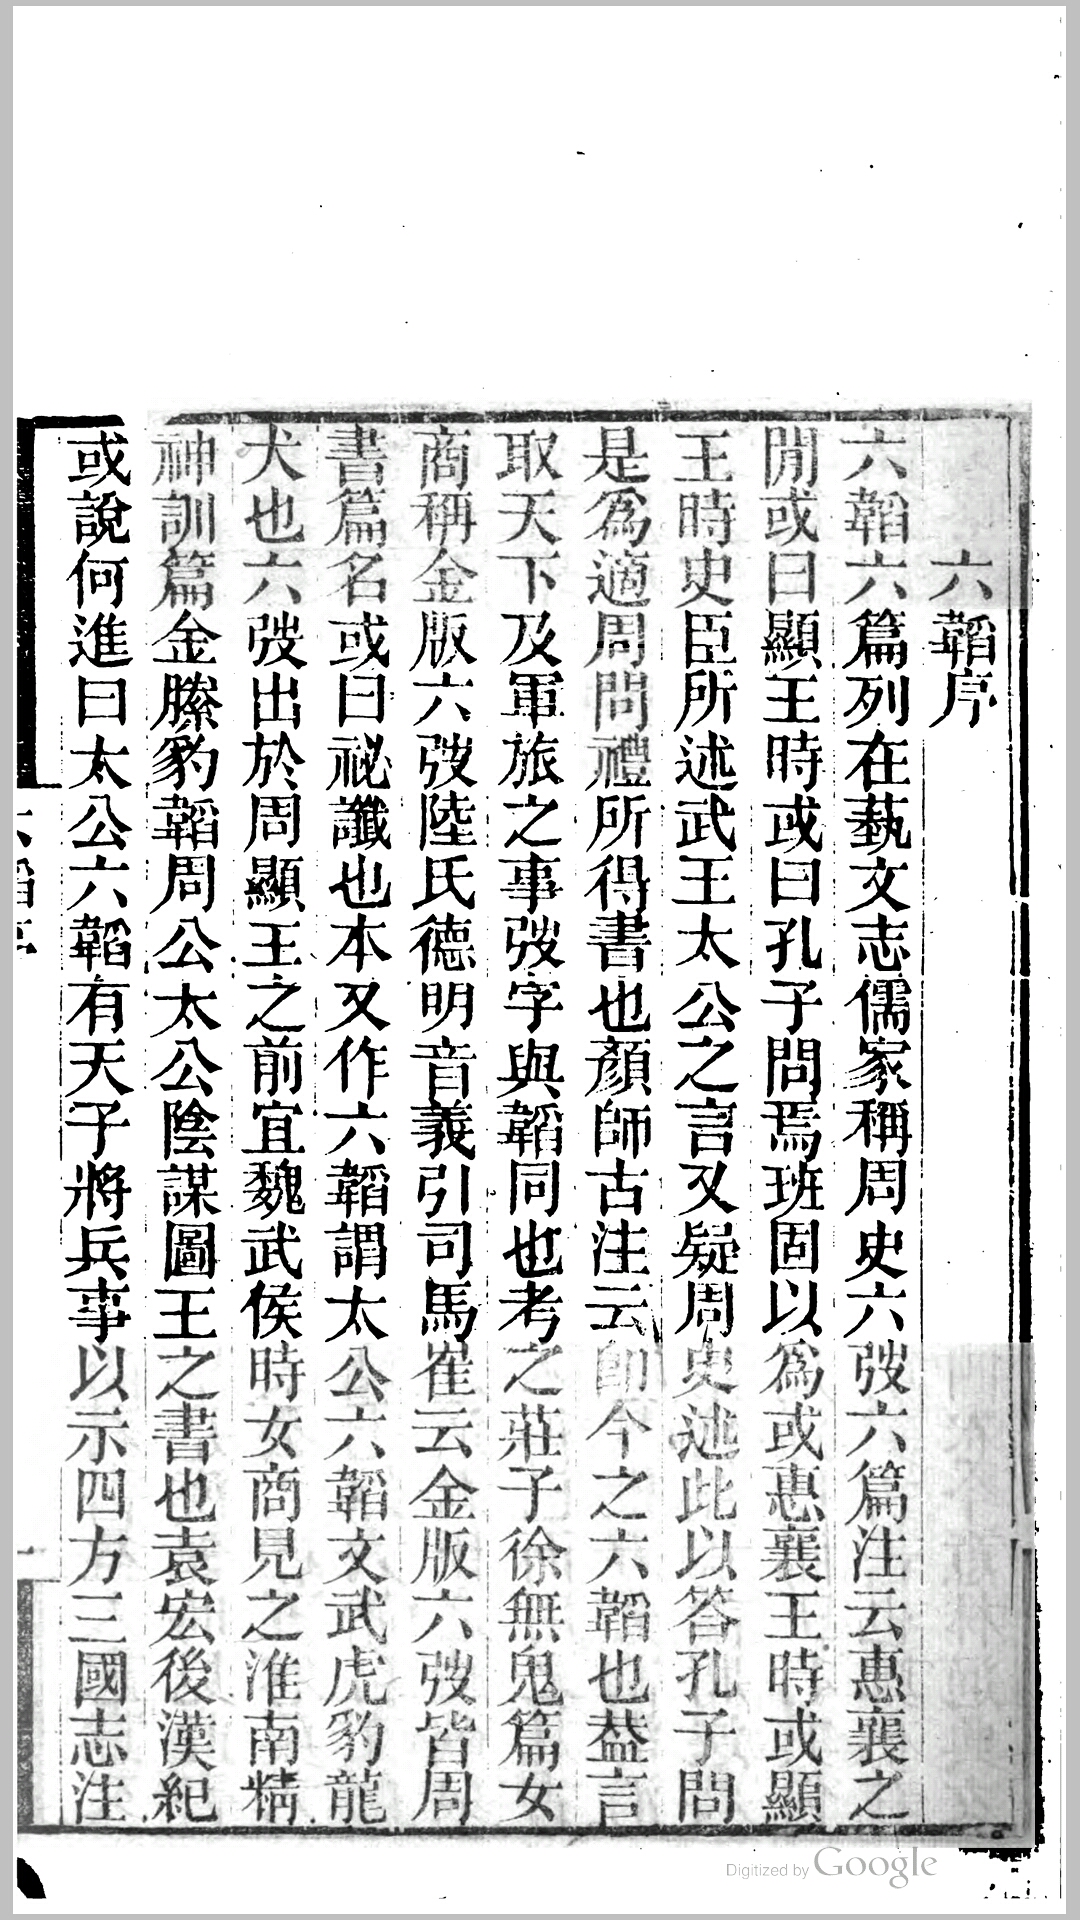 六韜序
六韜六篇列在藝文志儒家稱周史六弢六篇注云惠襄之
閒或曰顯王時或曰孔子問焉班固以爲或惠襄王時或顯
王時史臣所述武王太公之言又疑周史述此以答孔子問
是爲適周問禮所得書也顏師古注云卽今之六韜也葢言
取天下及軍旅之事弢字與韜同也考之莊子徐無鬼篇女
商稱金版六弢陸氏德明音義引司馬崔云金版六弢皆周
書篇名或曰祕讖也本又作六韜謂太公六韜文武虎豹龍
犬也六弢出於周顯王之前宜魏武侯時女商見之淮南精
神訓篇金縢豹韜周公太公陰謀圖王之書也袁宏後漢紀
或說何進曰太公六韜有天子將兵事以示四方三國志注
六韜序
一
Digitized by Google